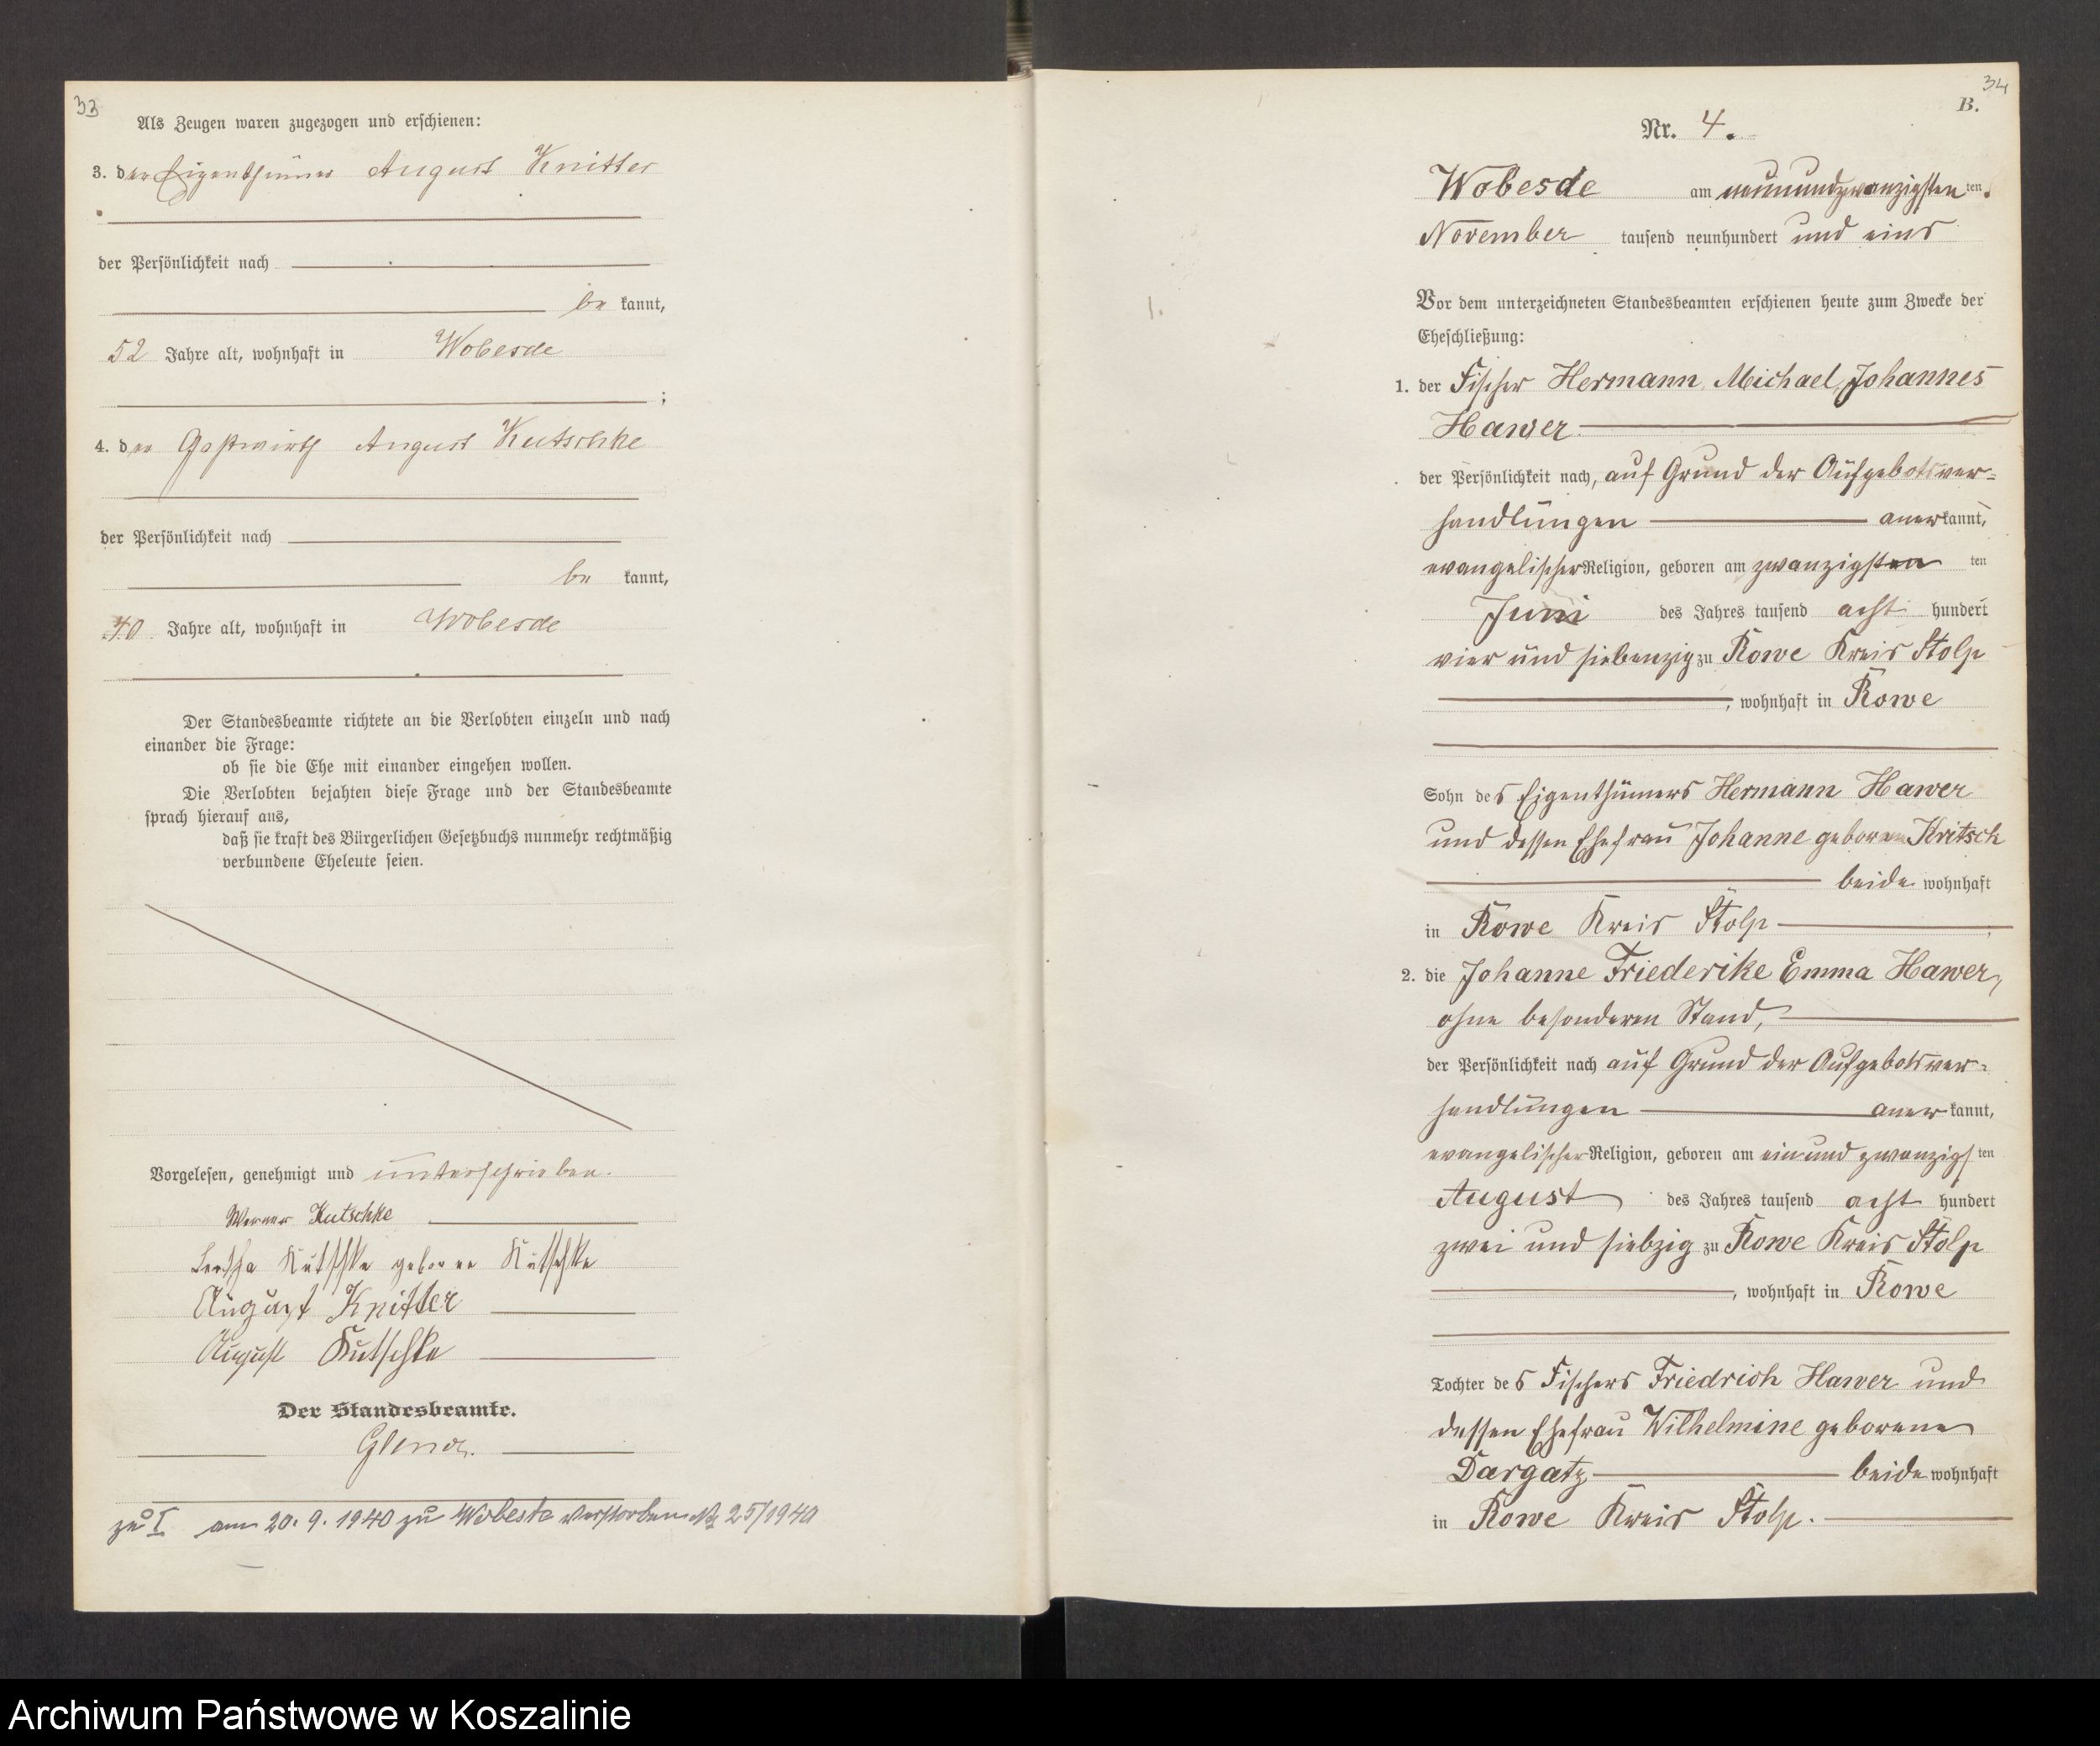 33
Als Zeugen waren zugezogen und erschienen:
3. der Eigenthümer August Knitter
der Persönlichkeit nach
be kannt,
52 Jahre alt, wohnhaft in Wobesde
;
4. der Gastwirth August Kutschke
der Persönlichkeit nach
be kannt,
40 Jahre alt, wohnhaft in Wobesde
Der Standesbeamte richtete an die Verlobten einzeln und nach
einander die Frage:
ob sie die Ehe mit einander eingehen wollen.
Die Verlobten bejahten diese Frage und der Standesbeamte
sprach hierauf aus,
daß sie kraft des Bürgerlichen Gesetzbuchs nunmehr rechtmäßig
verbundene Eheleute seien.
Vorgelesen, genehmigt und unterschrieben.
Werner Kutschke
Kutschke geborene Kutschke
August Knitter
August Kutschke
Der Standesbeamte.
zu I am 20. 9. 1940 zu Wobesde verstorben Nr 25/1940
34
B.
Nr. 4.
Wobesde am neunundzwanzigsten ten
November tausend neunhundert und eins
Vor dem unterzeichneten Standesbeamten erschienen heute zum Zwecke der
Eheschließung:
1. der Fischer Hermann Michael Johannes
Hawer
der Persönlichkeit nach, auf Grund der Aufgebotsver=
handlungen anerkannt,
evangelischer Religion, geboren am zwanzigsten ten
Juni des Jahres tausend acht hundert
vier und siebenzig zu Rowe Kreis Stolp
, wohnhaft in Rowe
Sohn des Eigenthümers Hermann Hawer
und dessen Ehefrau Johanne geboren Kritsch
beide wohnhaft
in Rowe Kreis Stolp ;
2. die Johanne Friederike Emma Hawer,
ohne besonderen Stand,
der Persönlichkeit nach auf Grund der Aufgebotsver=
handlungen aner kannt,
evangelischer Religion, geboren am ein und zwanzigs ten
August des Jahres tausend acht hundert
zwei und siebzig zu Rowe Kreis Stolp
, wohnhaft in Rowe
Tochter des Fischers Friedrich Hawer und
dessen Ehefrau Wilhelmine geborene
Dargatz beide wohnhaft
in Rowe Kreis Stolp.
Archiwum Państwowe w Koszalinie